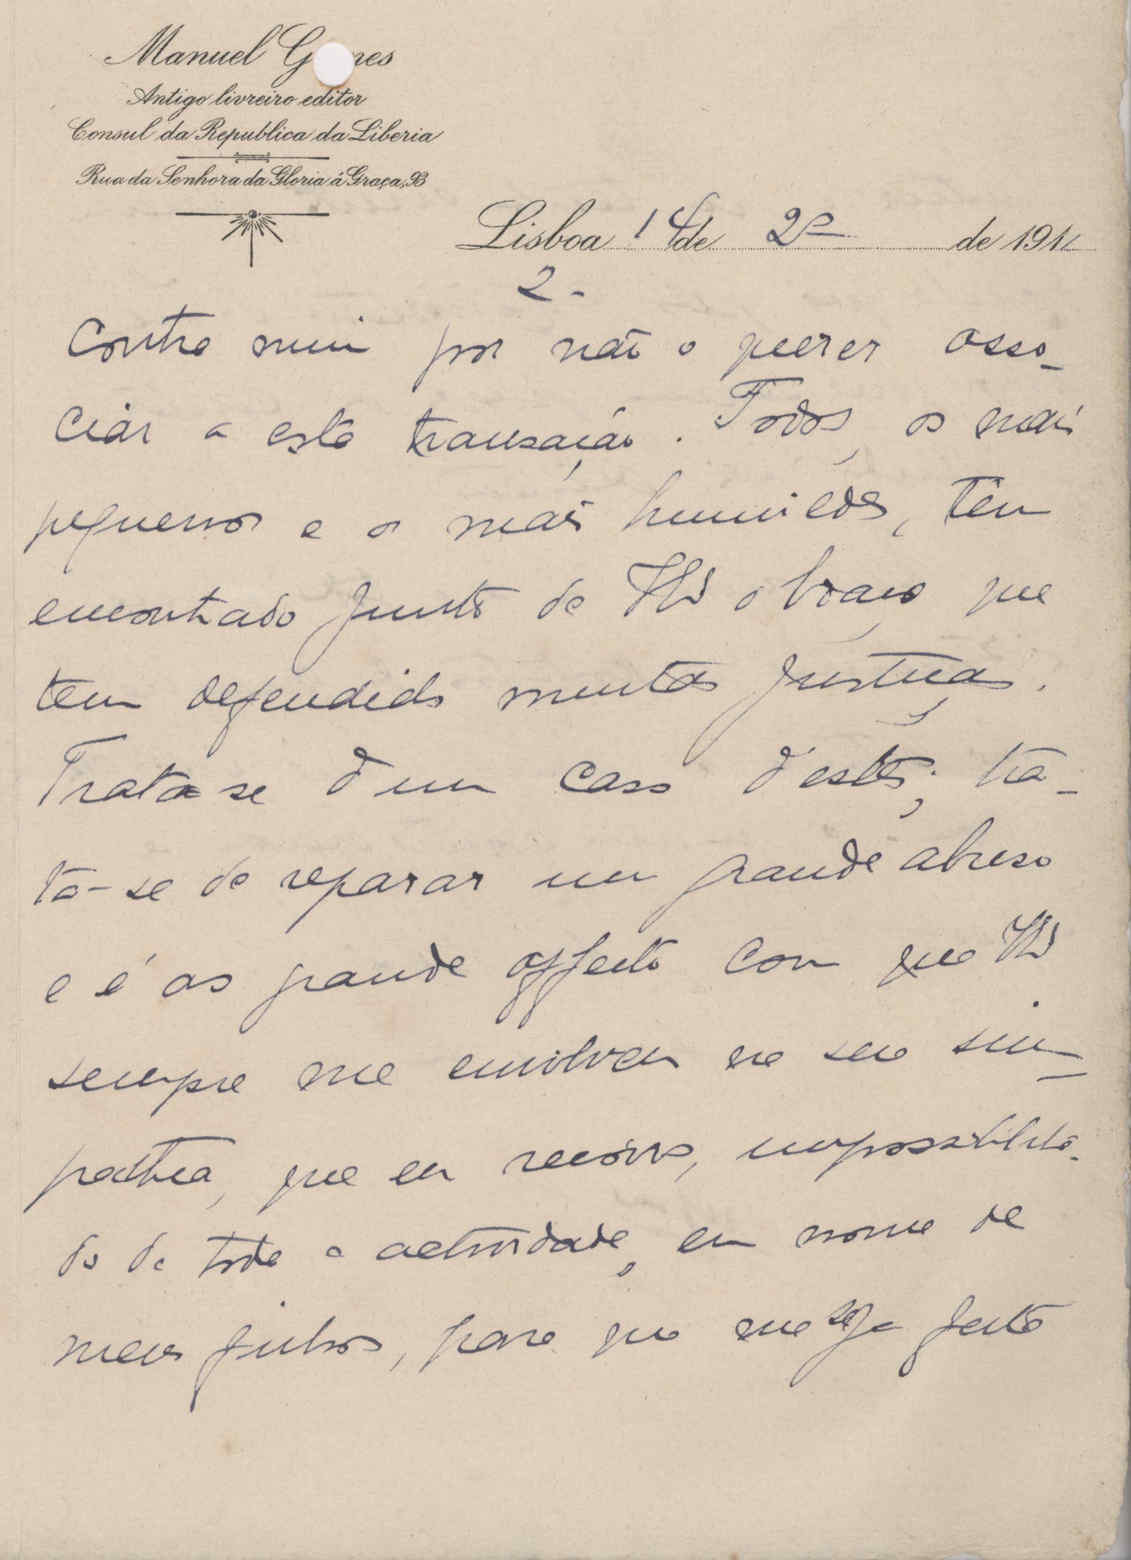 Manuel G nes
Antigo livreiro editor
Consul da Republica da Liberia
Rua da Senhora da Gloria á Graça, 93
Lisboa 14 de 2º de 191
2-
Contra mim por não o querer asso-
ciar a esta transação. Todos, os mais
pequenos e os mais humildes, têm
encontrado junto de o braço que
tem defendido muitas justiças.
Trata-se d'um caso d'estes; tra-
ta-se de reparar um grande abuso
e é ao grande affecto com que
sempre me envolveu na sua sim-
pathia, que eu recorro, impossibilita-
do de toda a actividade, em nome de
meus filhos, para que me seja feita